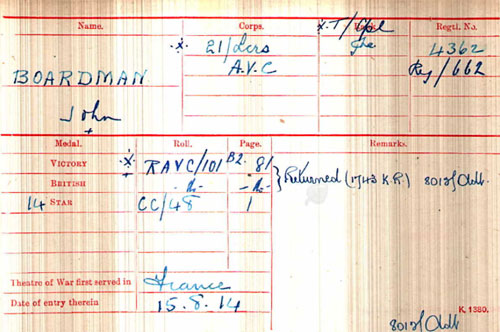 Name. Corps. Regtl. No.
BOARDMAN
John
x 21/Lcrs x T/Cpl 4362
A.V.C Reg/662
Medal. Roll. Page. Remarks.
VICTORY x RAVC/101 B2. 81 } Returned (1743 K.R)
BRITISH -do- -do-
14 STAR CC/48 1
Theatre of War first served in France
Date of entry therein 15.8.14
K. 1380.